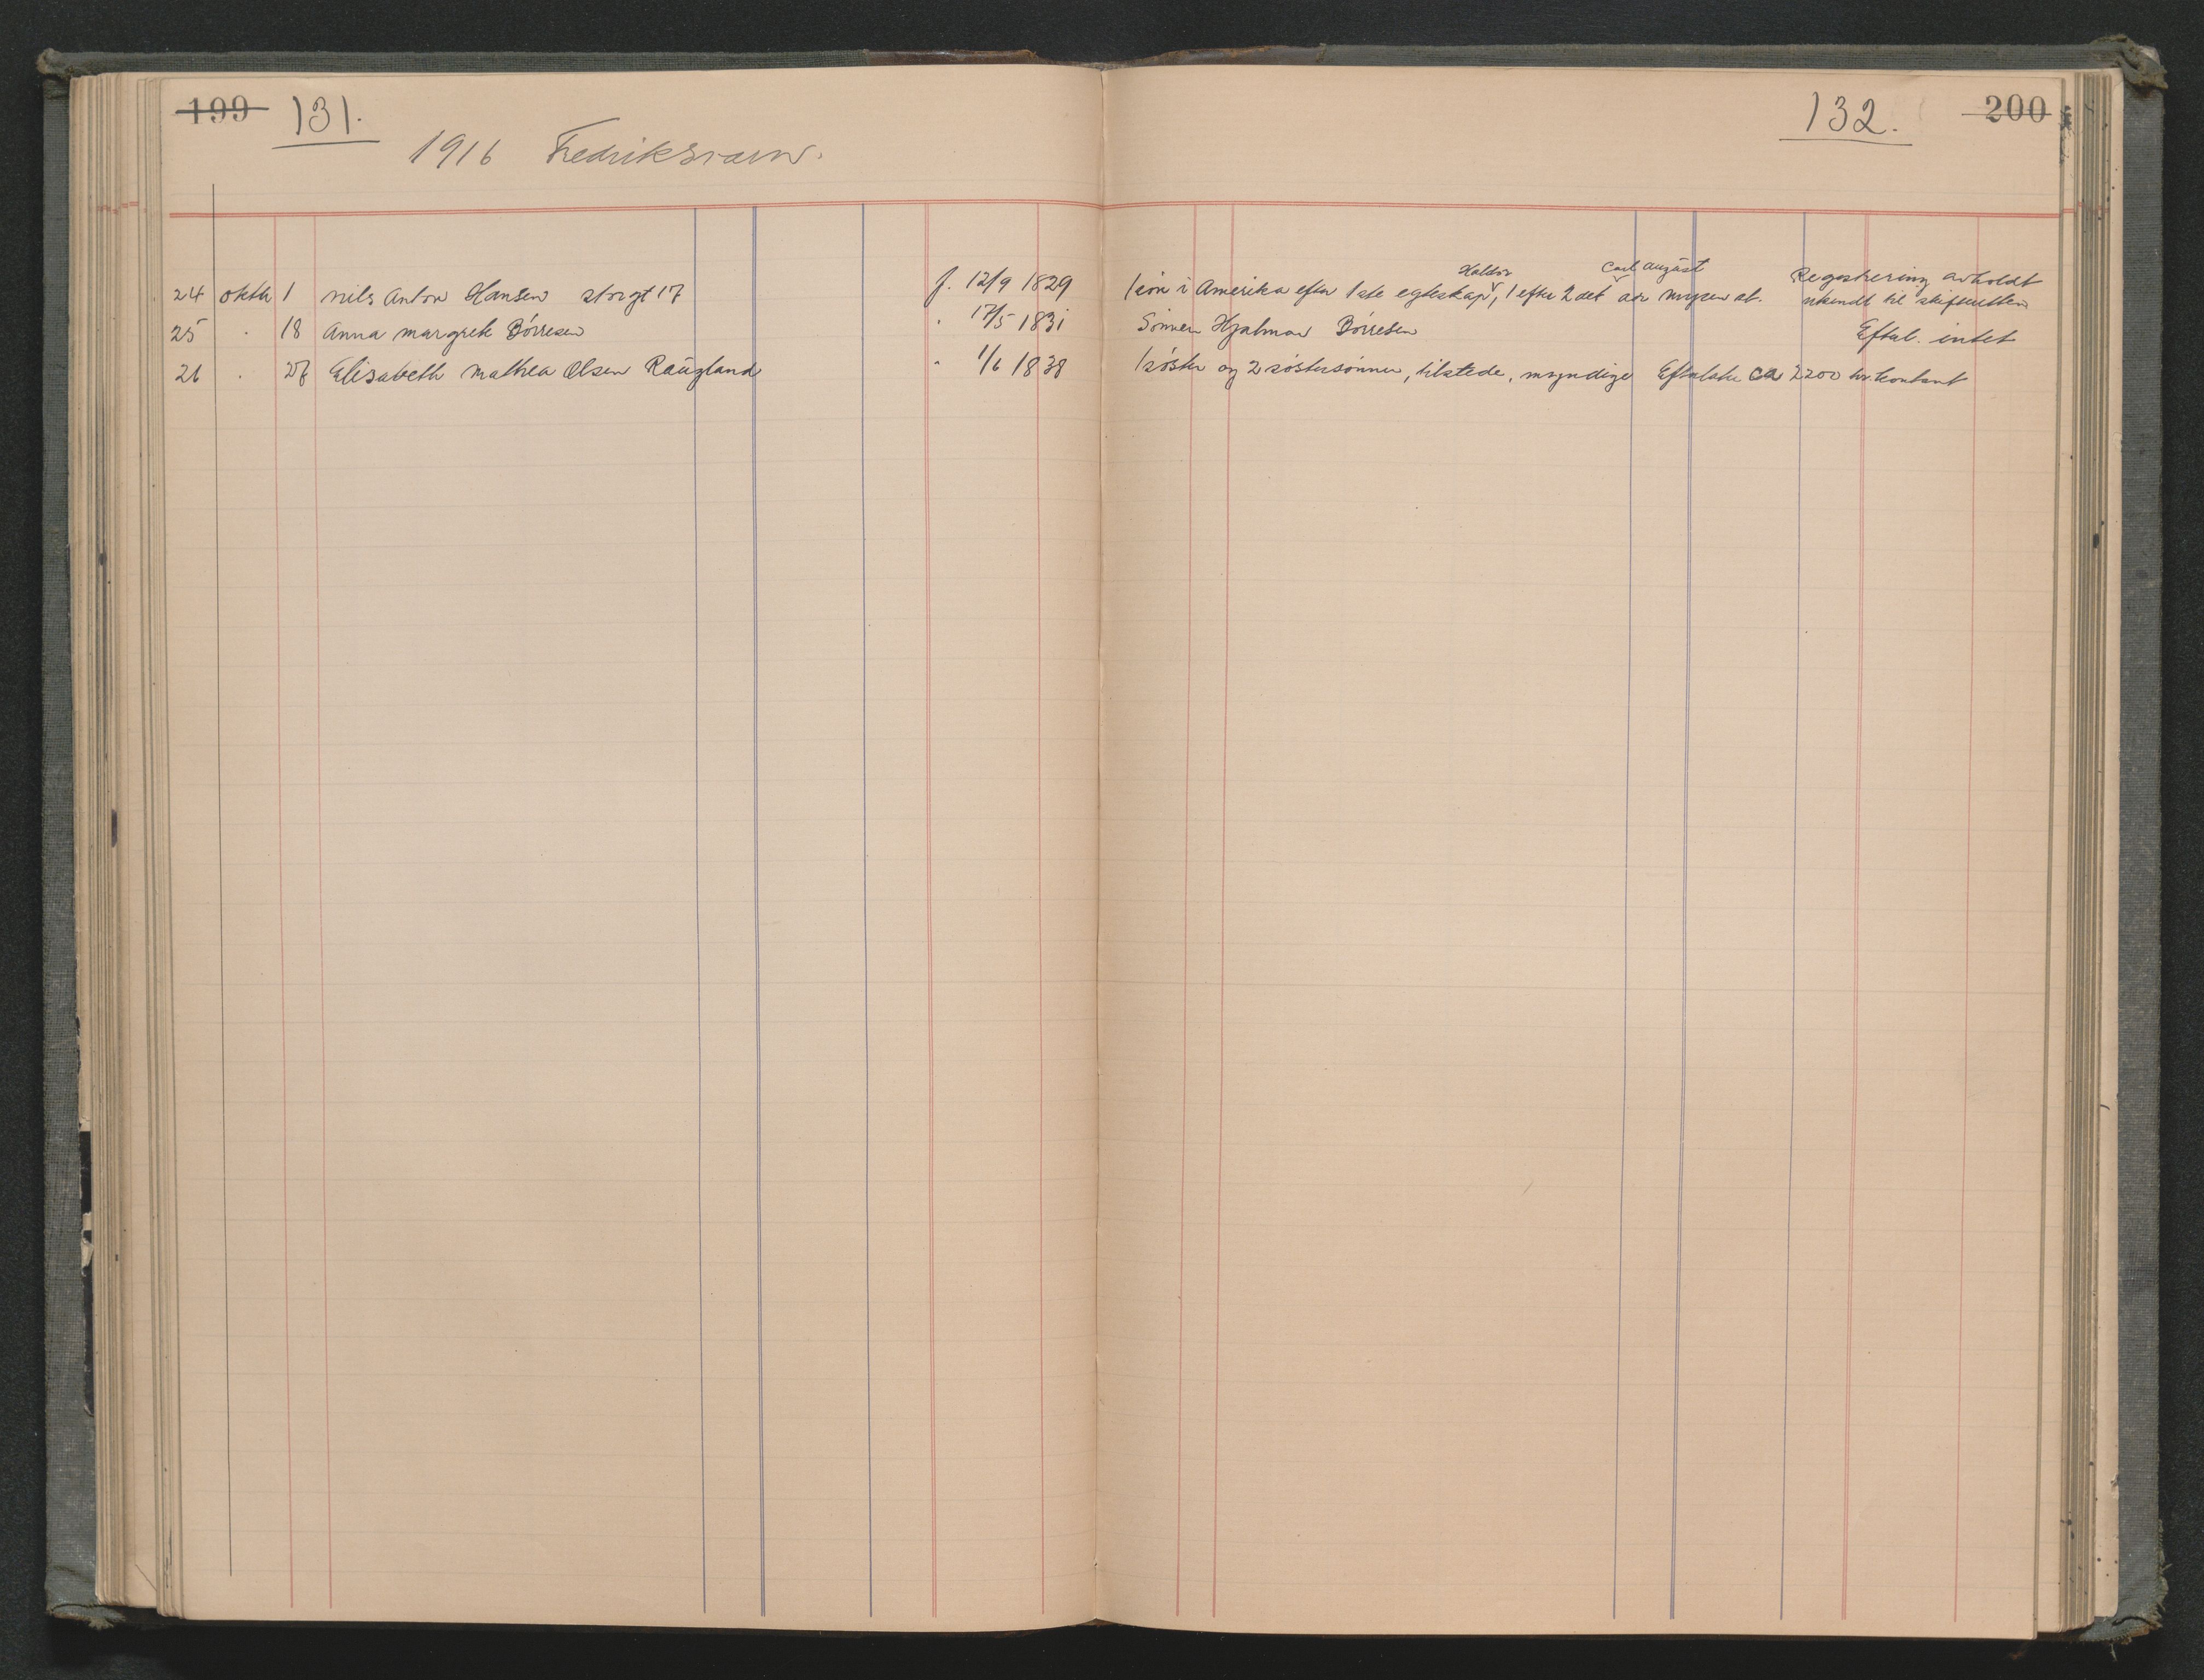 199 131.
1916 Fredriksværn.
24 oktb 1 Nils Anton Hansen Storgt 17 f. 12/9 1829
25 " 18 Anna Margrete Börresen " 17/5 1831
26 " 27 Elisabeth Mathea Olsen Raugland " 1/6 1838
132. 200
Haldor Carl August
1 sön i Amerika efter 1ste egteskap, 1 efter 2det Registrering avholdt
ukendt til skifteretten
Sönnen Hjalmar Börresen Efterl. intet
1 söster og 2 söstersönner, tilstede, myndige Efterlater ca 2200 kr. kontant